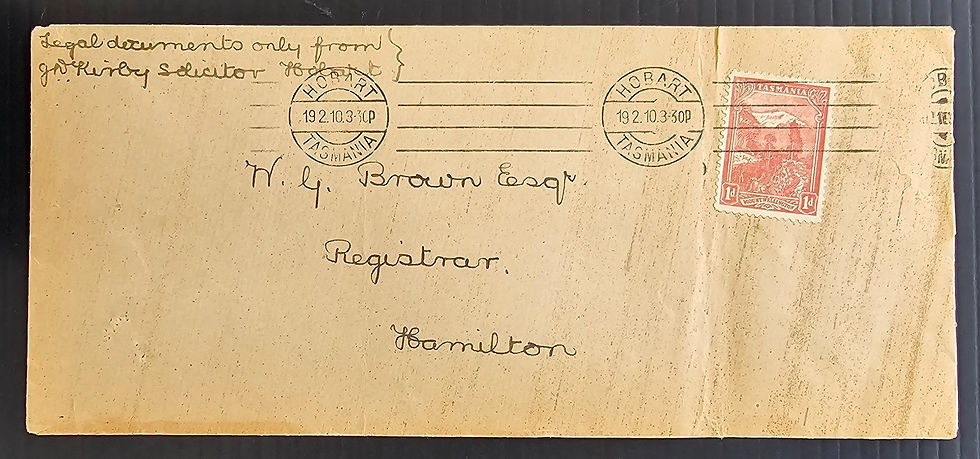 Legal documents only from
JW Kirby Solicitor Hobart
HOBART
19 2.10.3-30P
TASMANIA
HOBART
19 2.10.3-30P
TASMANIA
TASMANIA
MOUNT WELLINGTON
1d 1d
W. G. Brown Esqr.
Registrar.
Hamilton